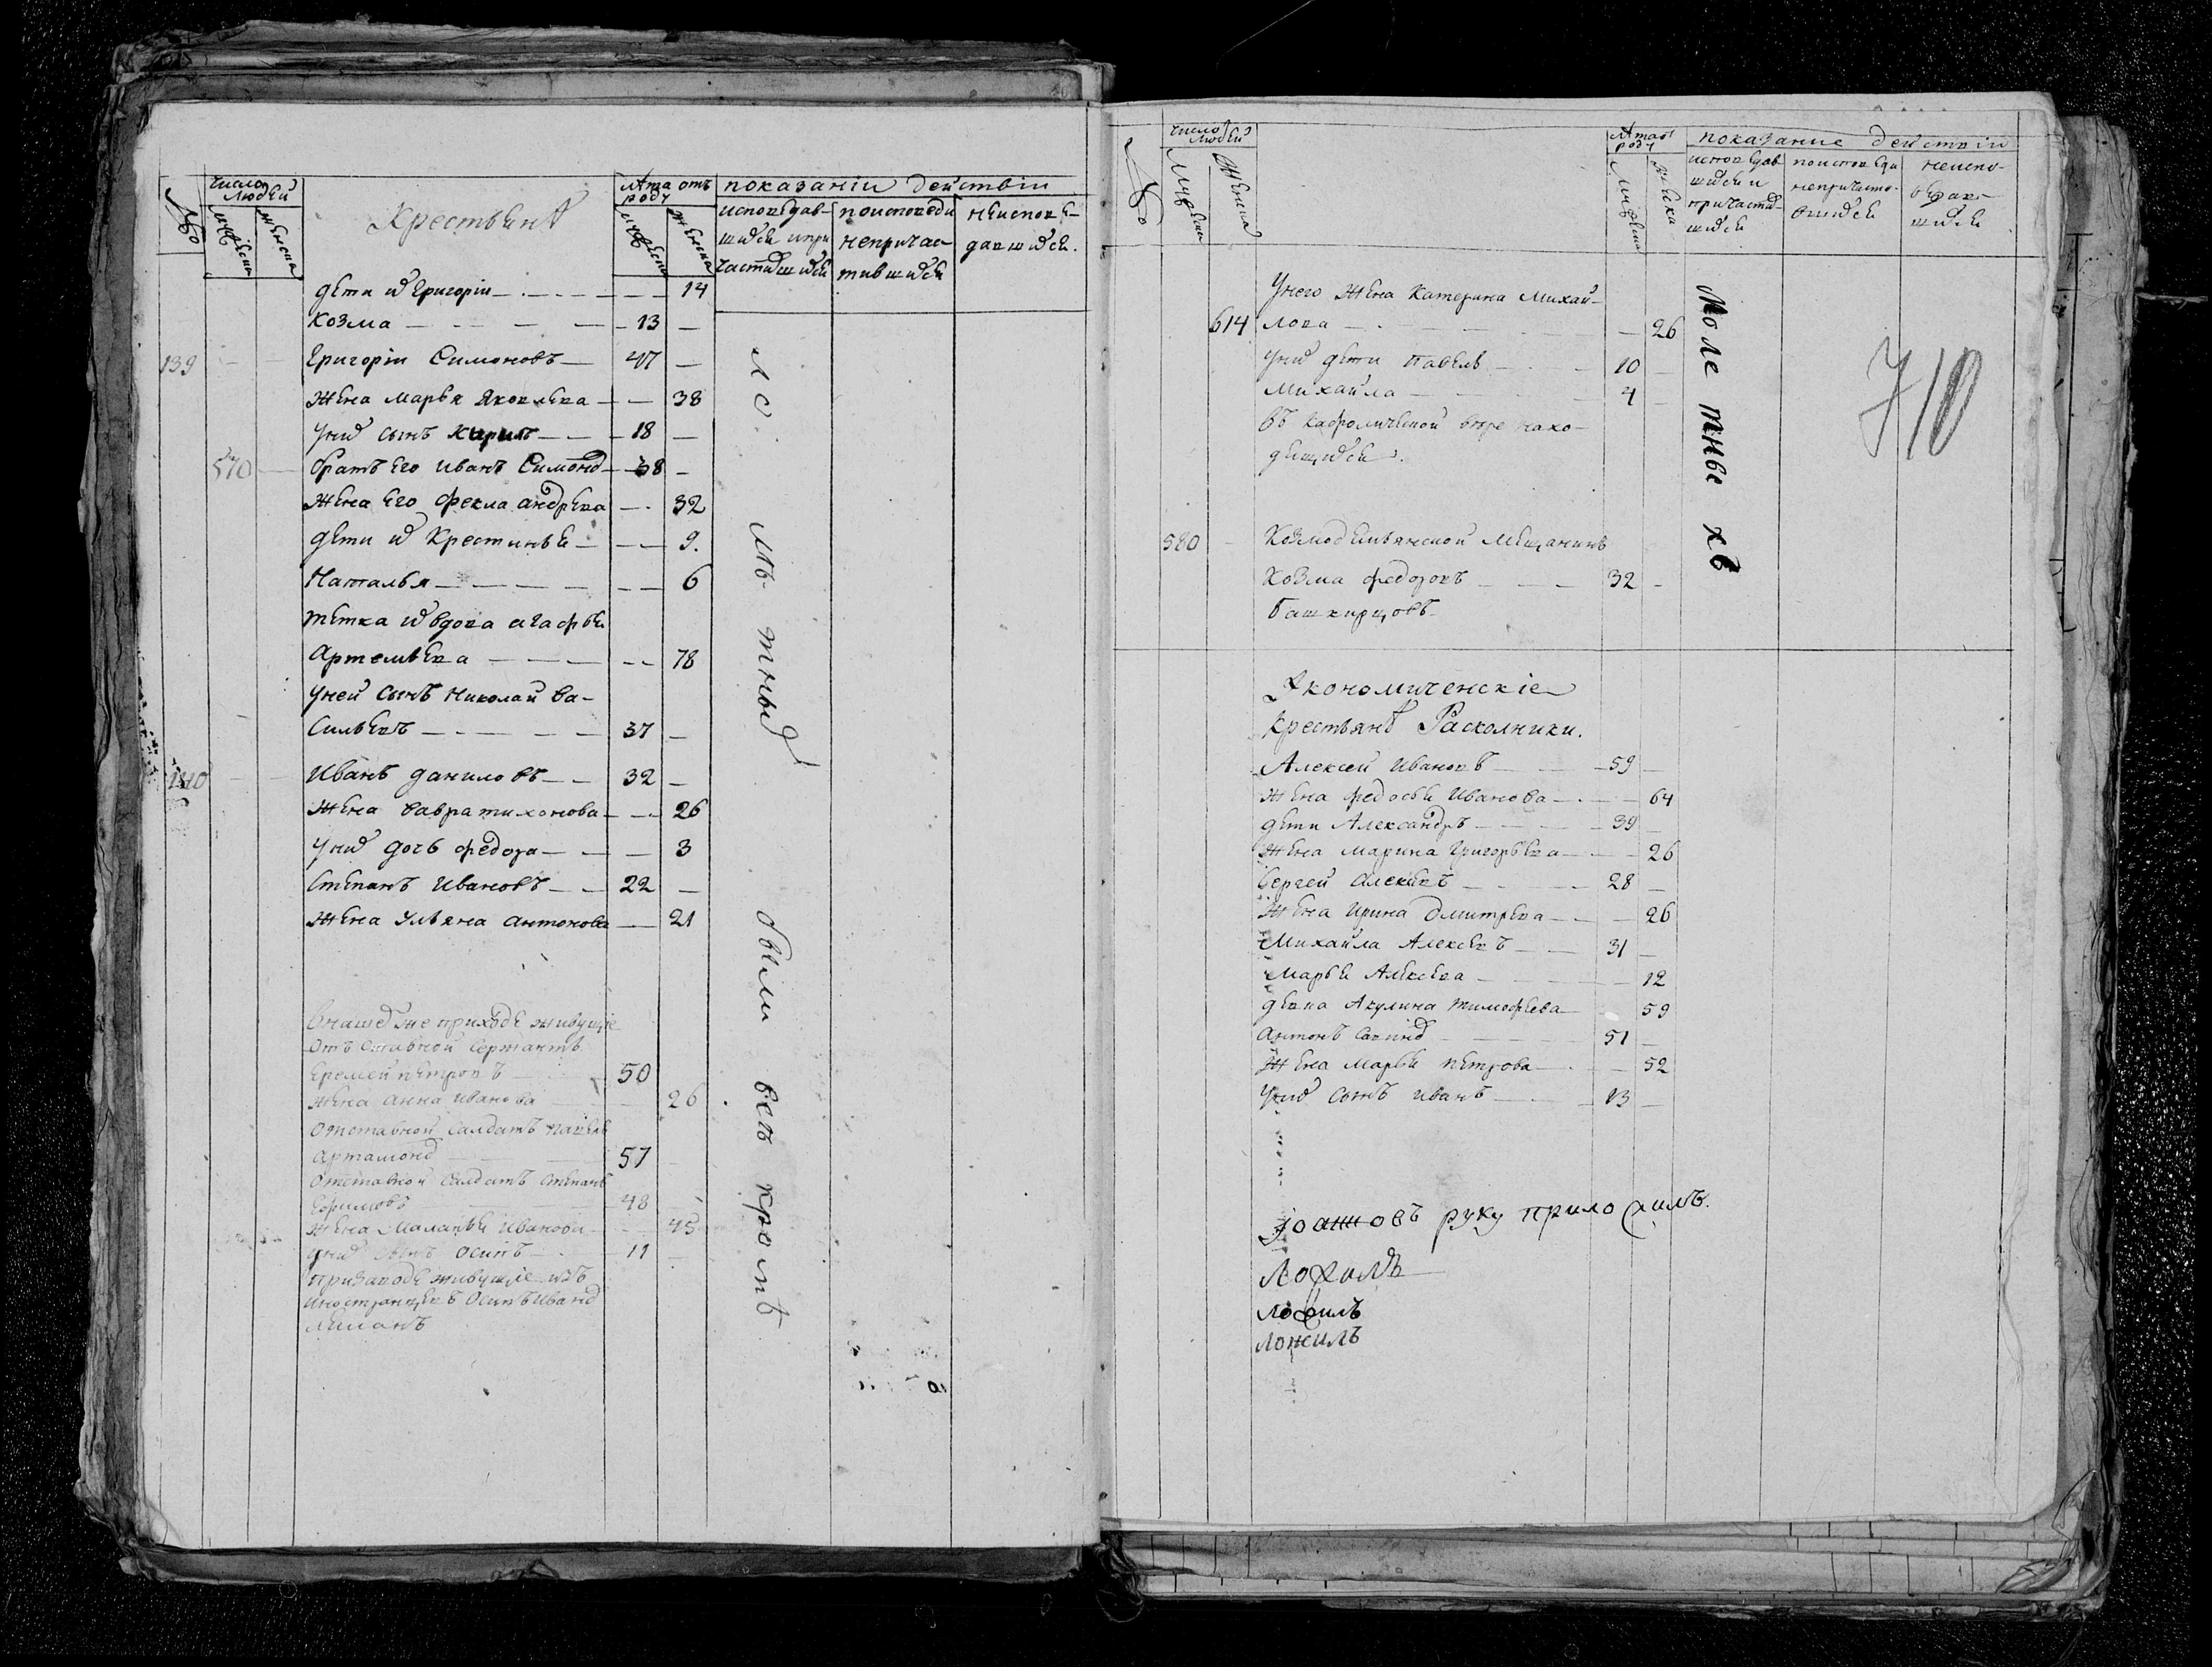 №
число людей
мужеска
женска
Крестьянѣ
лѣта отъ роду
мужеска
женска
показанiи действiи
исповедав-
шихся и при
частившихся
поисповеди
непричас
тившихся
неиспове-
давшихся.
дети их Григорiи 14
Козма 13
139 Григорiи Симоновъ 47
жена Марья Яковлева 38
у них сынъ Кирилъ 18
570 братъ его Иванъ Симоновъ 38
жена его Фекла Андрева 32
дети их Крестинья 9.
Наталья 6
тетка их вдова Агафья
Артемьева 78
у ней сынъ Николай Ва-
сильевъ 37
140 Иванъ Даниловъ 32
жена Варвра Тихонова 26
у них дочь Федора 3
Степанъ Ивановъ 22
жена Ульяна Антонова 21
В нашем же приходе живущiе
отъ ставной сержантъ
Еремей Петровъ 50
жена Анна Иванова 26
отставной салдатъ Павелъ
Артамонов 57
отставной салдатъ Степанъ
Ефимовъ 48
жена Маланья Иванова 45
у них сынъ Осипъ 11
при заводе живущiе изъ
иностранцевъ Осипъ Иванов
были все кромѣ
№
число людей
мужеска
женска
лѣта от роду
мужеска
женска
показание действiи
исповедав
шихся и
причастив
шихся
поисповеди
непричасти
вшихся
неиспо-
ведав-
шихся
У него жена Катерина Михай-
614 лова 26
у них дети Павелъ 10
Михайла 4
въ кафолической вере нахо-
дящихся.
580 Козмодемьянской мещанинъ
Козма Федоровъ 32
Башкирцовъ
малетныехъ
710
Якономическiе
крестьянѣ Расколники.
Алексей Ивановъ 59
жена Федосья Иванова 64
дети Александръ 39
жена Марина Григорьева 26
Сергей Алексевъ 28
жена Ирина Дмитрева 26
Михайла Алексевъ 31
Марья Алексева 12
девка Акулина Тимофеева 59
Антонъ Савинов 51
жена Марья Петрова 52
у них сынъ Иванъ 13
Иоанновъ руку приложилъ.
ложилъ
ложилъ
ложилъ